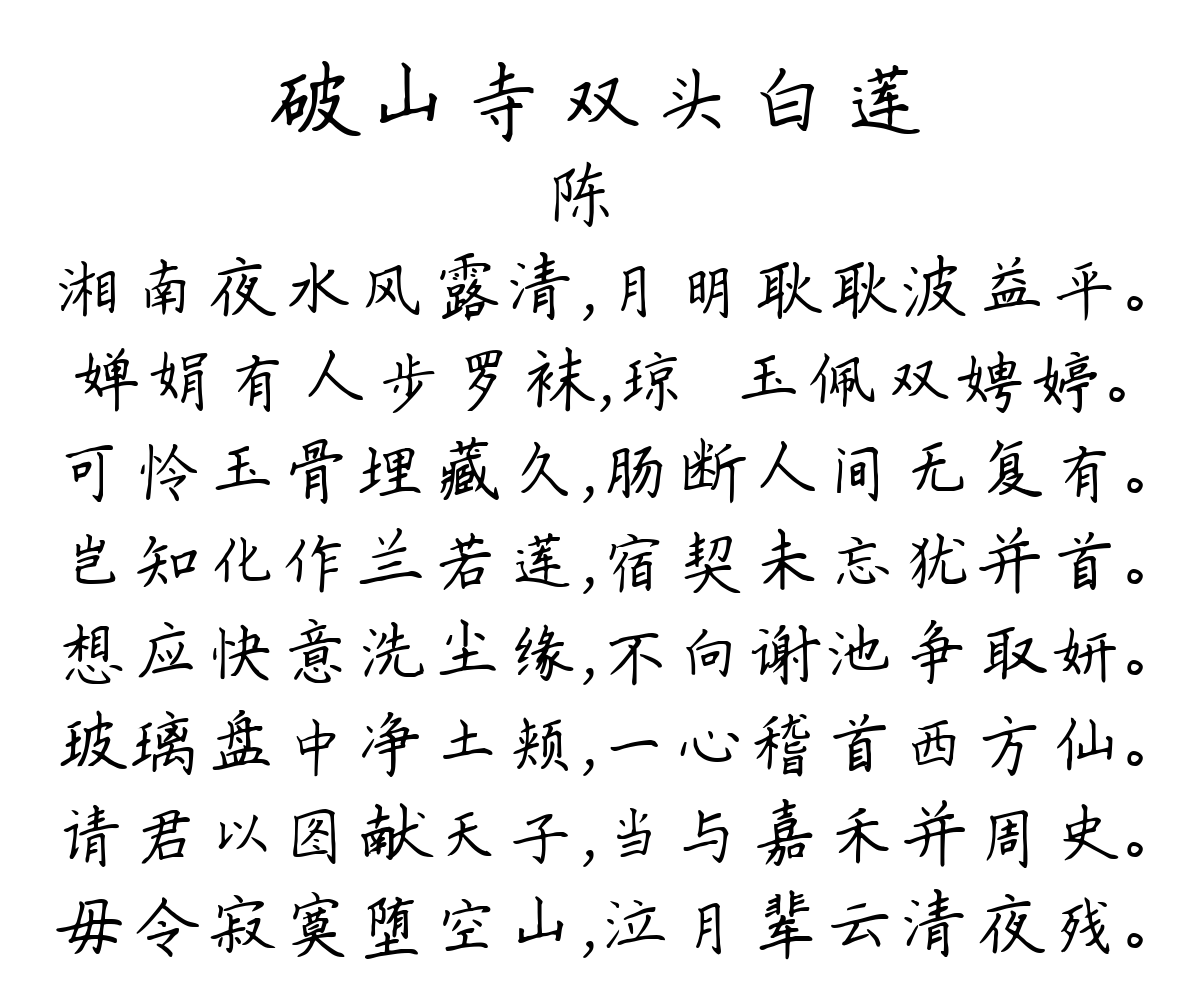 破山寺双头白莲
陈
湘南夜水风露清,月明耿耿波益平。
婵娟有人步罗袜,琼 玉佩双娉婷。
可怜玉骨埋藏久,肠断人间无复有。
岂知化作兰若莲,宿契未忘犹并首。
想应快意洗尘缘,不向谢池争取妍。
玻璃盘中净土颊,一心稽首西方仙。
请君以图献天子,当与嘉禾并周史。
毋令寂寞堕空山,泣月辈云清夜残。